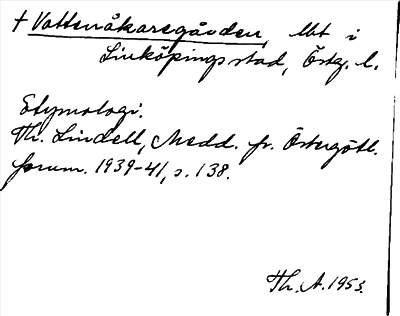 † Vattenåkaregården, Mt i
Linköpings stad, Östg. l.
Etymologi.
Th. Lindell, Medd. fr. Östergötl.
fornm. 1939-41, s. 138.
Th. A. 1953.